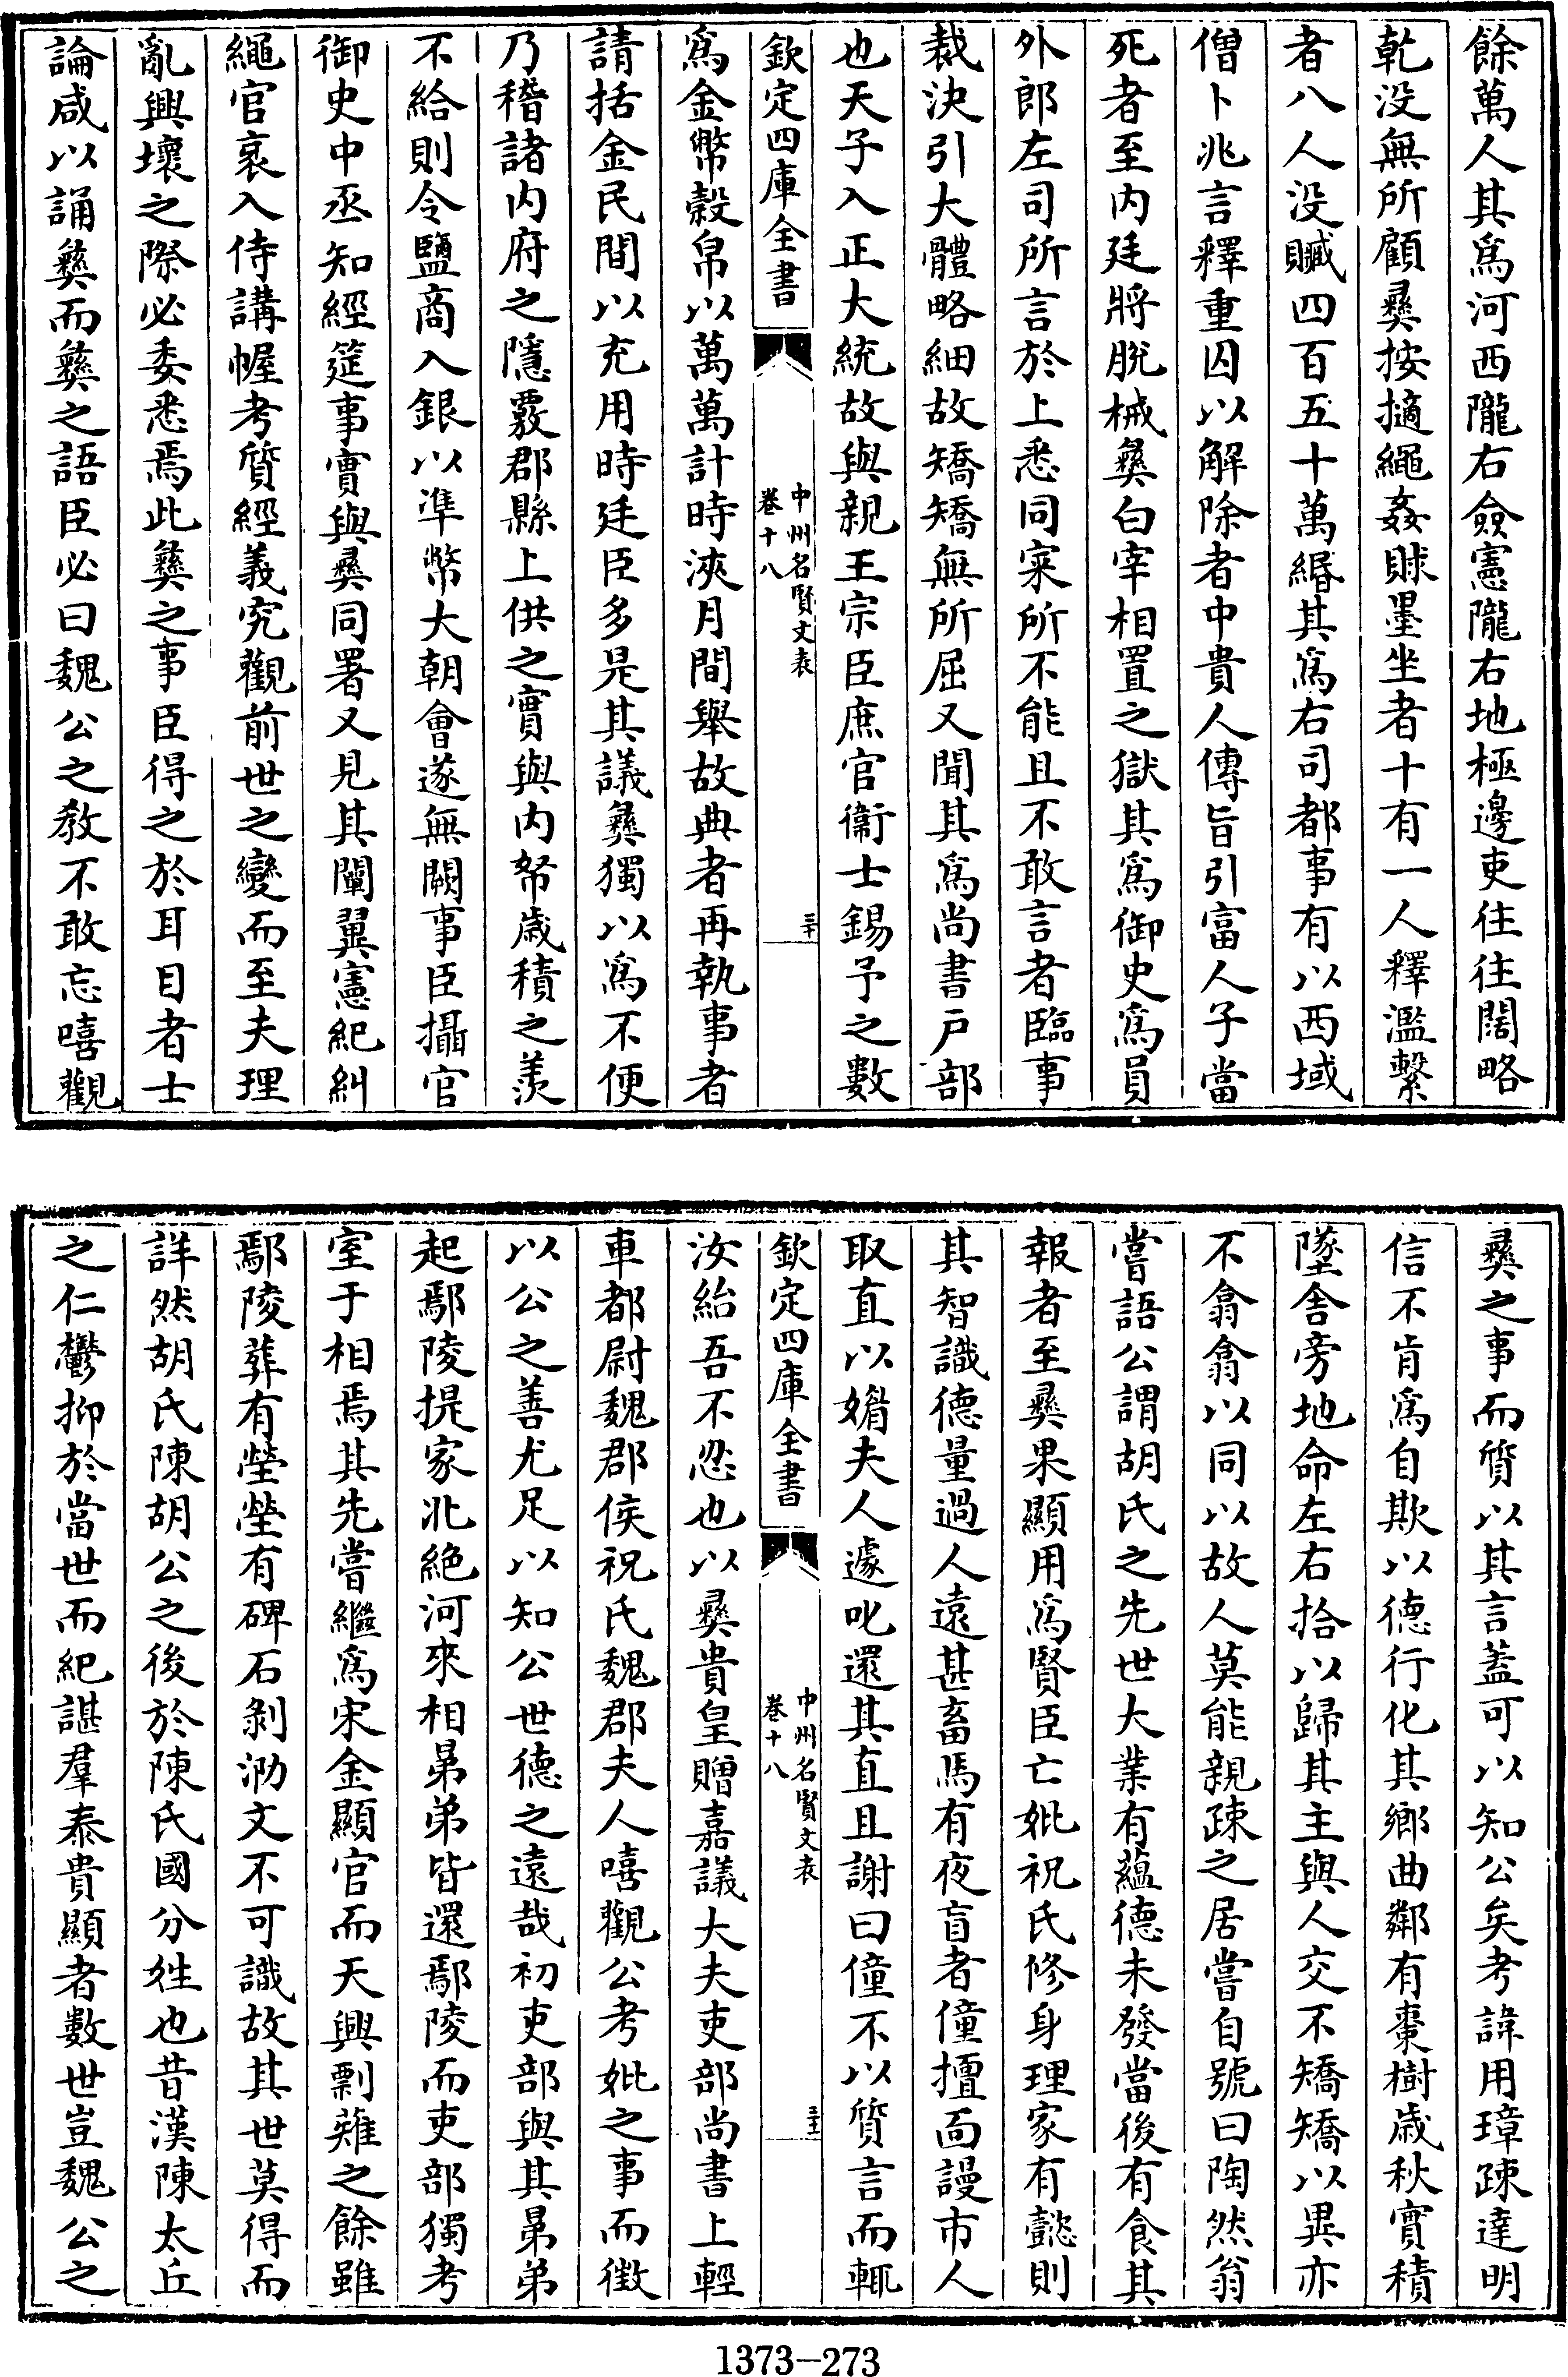 餘萬人其爲河西隴右僉憲隴右地極邊吏往往闊略
乾没無所顧彛按擿繩姦賕墨坐者十有一人釋濫繫
者八人没贓四百五十萬緡其爲右司都事有以西域
僧卜兆言釋重囚以解除者中貴人傳旨引富人子當
死者至内廷將脱械彛白宰相置之獄其爲御史爲員
外郎左司所言於上悉同寀所不能且不敢言者臨事
裁決引大體略細故矯矯無所屈又聞其爲尚書户部
也天子入正大統故與親王宗臣庶官衛士錫予之數
欽定四庫全書
中州名賢文表
卷十八
三十
爲金幣穀帛以萬萬計時浹月間舉故典者再執事者
請括金民間以充用時廷臣多是其議彛獨以爲不便
乃稽諸内府之隱覈郡縣上供之實與内帑歲積之羨
不給則令鹽商入銀以凖幣大朝會遂無闕事臣攝官
御史中丞知經筵事實與彛同署又見其闡翼憲紀糾
繩官衺入侍講幄考質經義究觀前世之變而至夫理
亂興壞之際必委悉焉此彛之事臣得之於耳目者士
論咸以誦彛而彛之語臣必曰魏公之教不敢忘嘻觀
彛之事而質以其言葢可以知公矣考諱用璋疎達明
信不肯爲自欺以德行化其鄉曲鄰有棗樹歳秋實積
墜舍旁地命左右拾以歸其主與人交不矯矯以異亦
不翕翕以同以故人莫能親疎之居嘗自號曰陶然翁
嘗語公謂胡氏之先世大業有藴德未發當後有食其
報者至彛果顯用爲賢臣亡妣祝氏修身理家有懿則
其智識德量過人遠甚畜馬有夜盲者僮擅面謾市人
取直以媚夫人遽叱還其直且謝曰僮不以質言而輒
欽定四庫全書
中州名賢文表
卷十八
三十一
汝紿吾不忍也以彛貴皇贈嘉議大夫吏部尚書上輕
車都尉魏郡侯祝氏魏郡夫人嘻觀公考妣之事而徴
以公之善尤足以知公世德之遠哉初吏部與其晜弟
起鄢陵提家兆絶河來相晜弟皆還鄢陵而吏部獨考
室于相焉其先嘗繼爲宋金顯官而天興剽薙之餘雖
鄢陵葬有塋塋有碑石剥泐文不可識故其世莫得而
詳然胡氏陳胡公之後於陳氏國分姓也昔漢陳太丘
之仁鬱抑於當世而紀諶羣泰貴顯者數世豈魏公之
1373—273